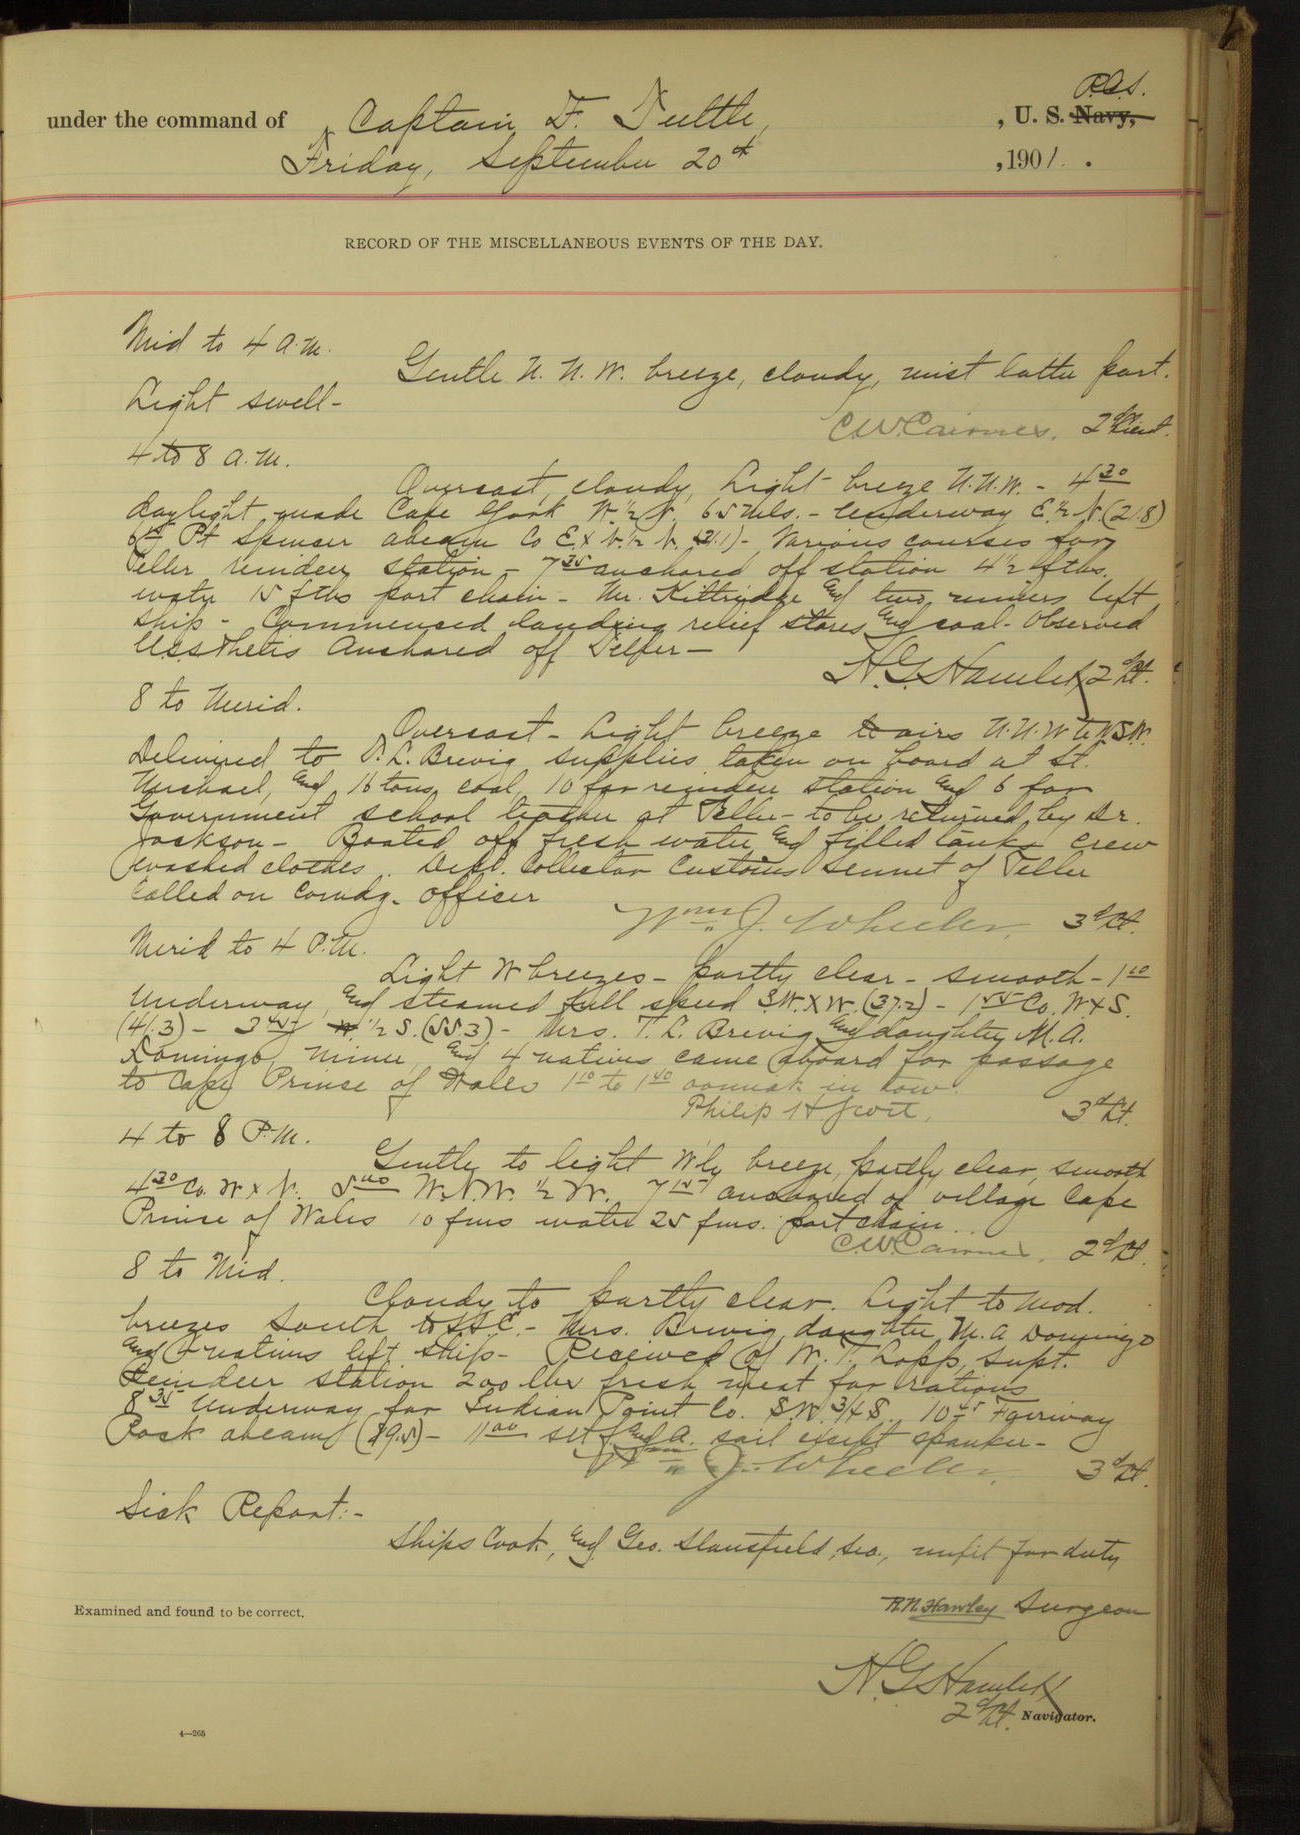 R.C.S.
under the command of Captain F. Tuttle, , U. S. Navy,
Friday, September 20th ,1901.
RECORD OF THE MISCELLANEOUS EVENTS OF THE DAY.
Mid to 4 A.M.
Gentle N.N.W. breeze, cloudy, mist latter part.
Light swell-
C.W. Cairnes, 2d Lieut.
4 to 8 A.M.
Overcast, cloudy, Light breeze N.N.W. - 4 30
daylight made Cape York N.½ N. 65 Mls. - Underway E.½ N (21.8)
Pt Spencer abeam Co E x N.½ N. (31.1) - Various courses for
Teller reindeer station - 7 35 anchored off station 4½ fths.
water 15 fths port chain - Mr. Kittridge and two miners left
ship - Commenced landing relief stores and coal. Observed
U.S.S Thetis Anchored off Teller -
H.G. Hamlet 2d Lt.
8 to Merid.
Overcast - Light breeze to airs N.N.W to WSW.
Delivered to T.L. Brevig supplies taken on board at St.
Michael, and 16 tons coal, 10 for reindeer station and 6 for
Government school teacher at Teller - to be returned by Dr.
Jackson - Boated off fresh water and filled tanks Crew
washed clothes. Dept. Collector Customs Sennet of Teller
Called on Comdg. officer
Wm. J. Wheeler, 3d Lt.
Merid to 4 P.M.
Light W breezes - partly clear - smooth - 1 10
Underway, and steamed full speed S.W.xW. (37.2) - 1 55 Co. W x S.
(41.3) - 3 45 W ½ S. (55.3) - Mrs. T. L. Brevig and daughter, M. A.
Domingo, miner, and 4 natives came aboard for passage
to Cape Prince of Wales 1 10 to 1 40 oomiak in tow.
Philip H. Scott, 3d Lt.
4 to 8 P.M.
Gentle to light W'ly breeze, partly clear, smooth
4 30 Co. W x N. 5 00 W.N.W. ½ W. 7 15 anchored of village Cape
Prince of Wales 10 fms water 25 fms. port chain.
C.W. Cairnes, 2d Lt.
8 to Mid.
Cloudy to partly clear. Light to Mod.
breezes South to S.S.E. - Mrs. Brevig, daughter, M. A Domingo
and natives left ship - Received of W. T. Lopp, Supt.
Reindeer station 200 lbs fresh meat for rations
8 35 Underway for Indian Point Co. S.W. ¾ S. 10 45 Fairway
Rock abeam (89.5) - 11 00 set f and a. sail except spanker -
Wm. J. Wheeler, 3d Lt.
Sick Report:-
Ships Cook, and Geo. Stansfield, Sea., unfit for duty
Examined and found to be correct.
R.N. Hawley Surgeon
H.G. Hamlet
2d Lt. Navigator.
4—265